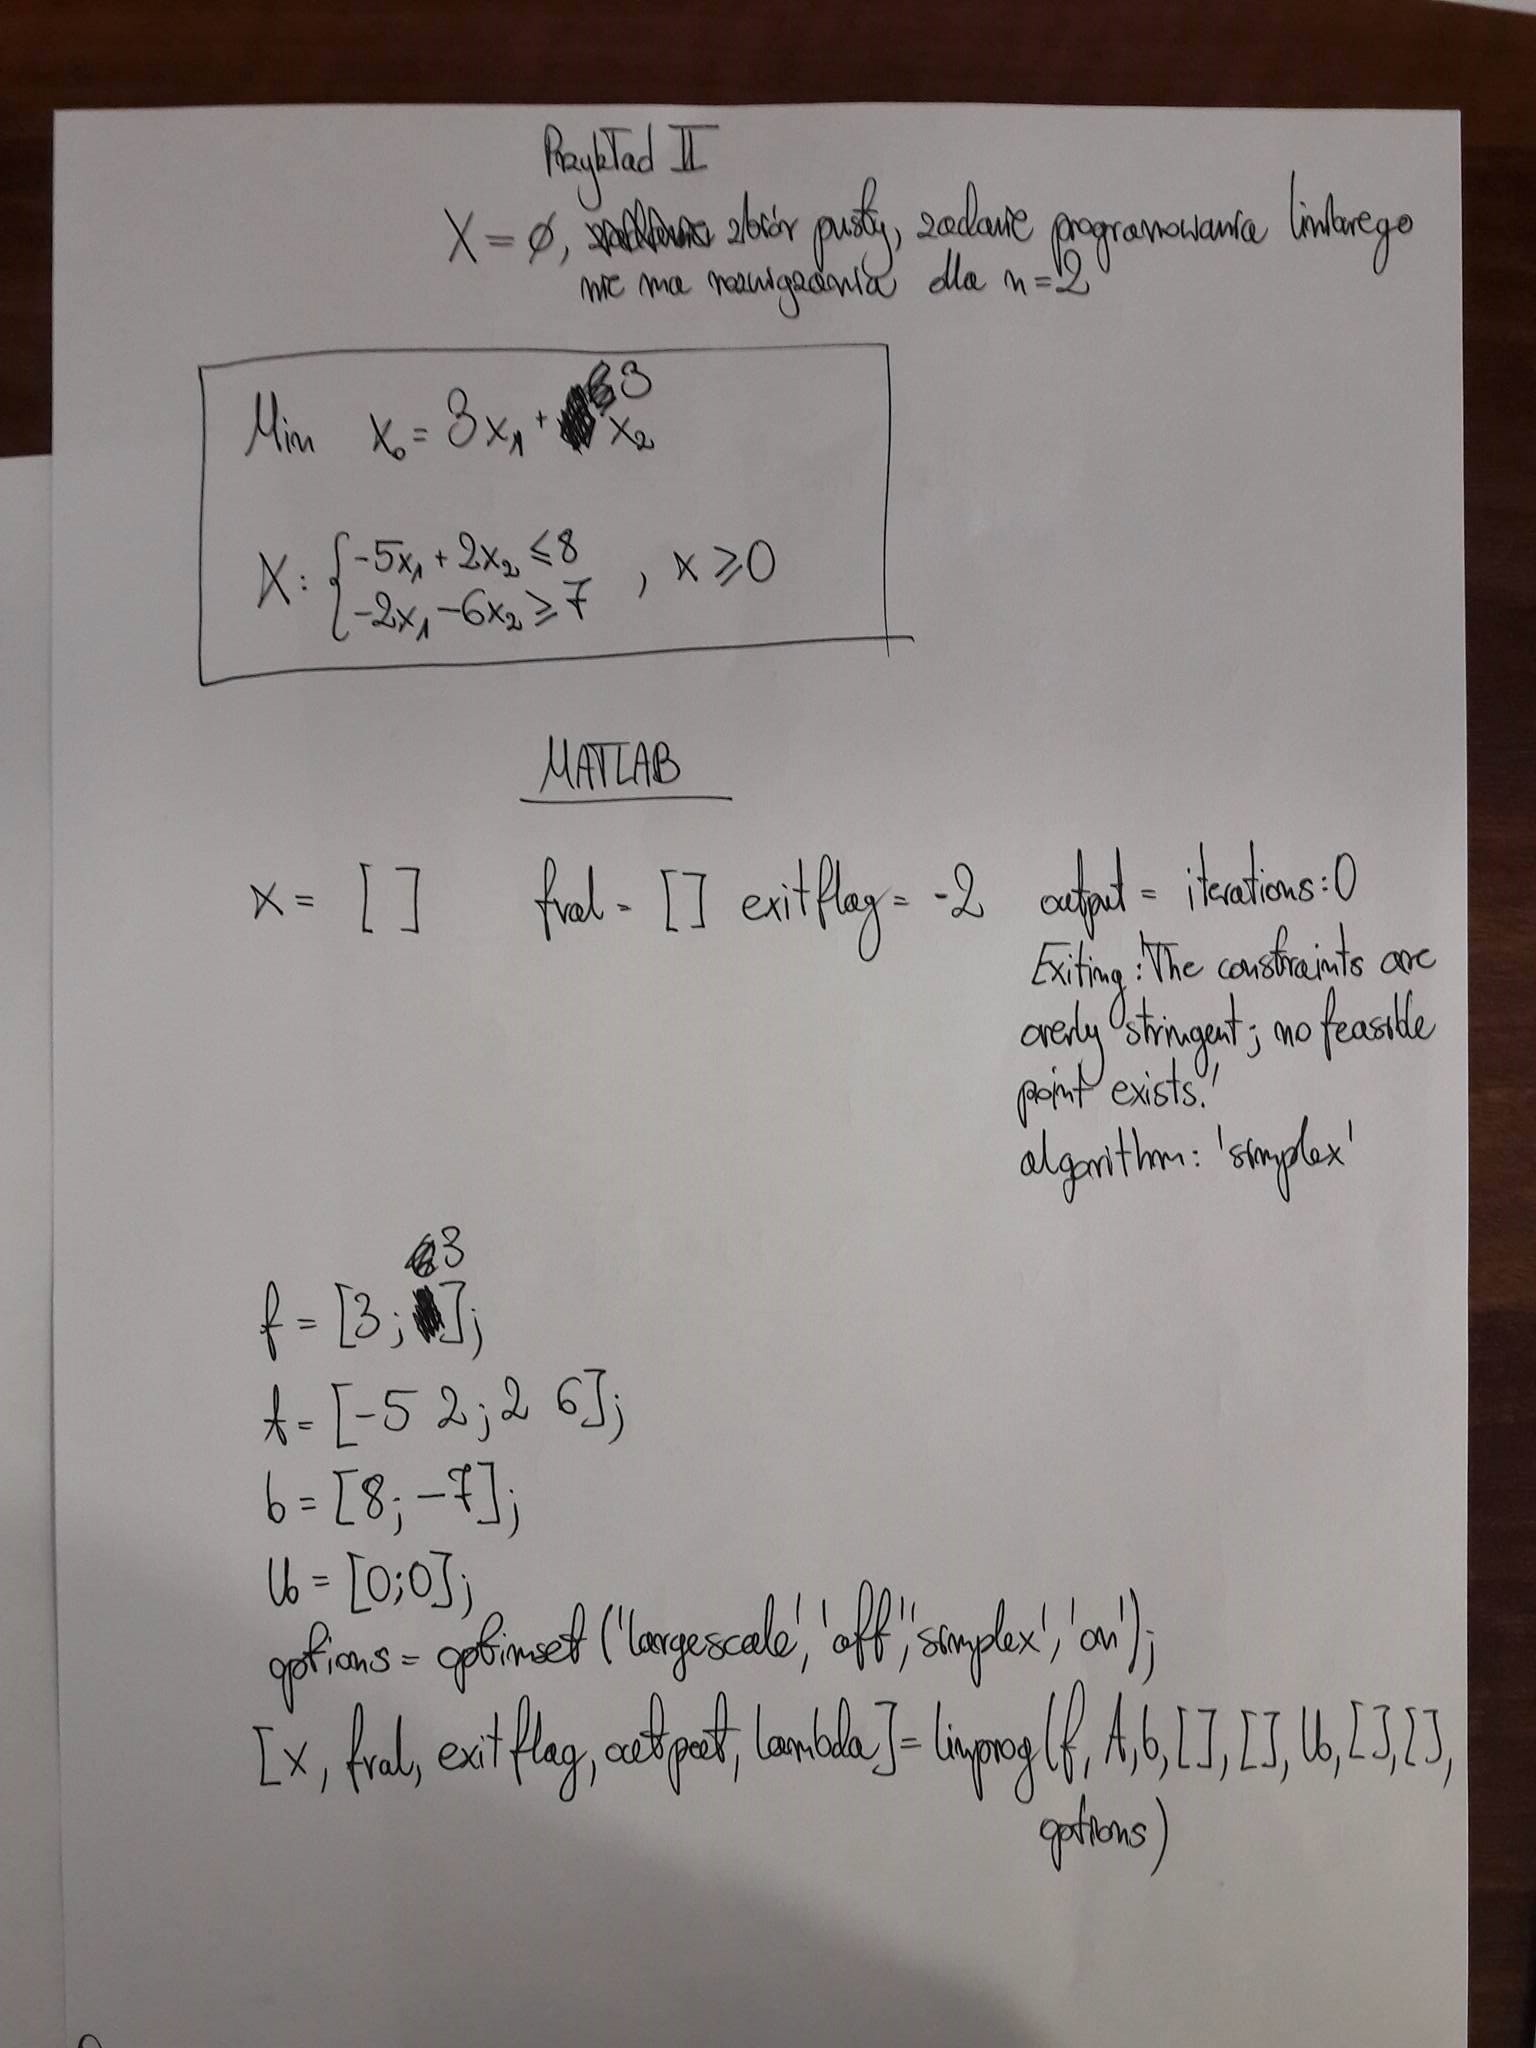 Przykład II
X = ∅, zbiór pusty, zadanie programowania liniowego
nie ma rozwiązania dla n=2
Min x₀ = 3x₁ + 3x₂
X: { -5x₁ + 2x₂ ≤ 8
-2x₁ - 6x₂ ≥ 7 , x ≥ 0
MATLAB
x = [ ] fval = [ ] exitflag = -2 output = iterations: 0
Exiting: 'The constraints are
overly stringent; no feasible
point exists.'
algorithm: 'simplex'
f = [3; 3];
A = [-5 2; 2 6];
b = [8; -7];
lb = [0;0];
options = optimset('largescale','off','simplex','on');
[x, fval, exitflag, output, lambda] = linprog(f, A, b, [], [], lb, [], [],
options)